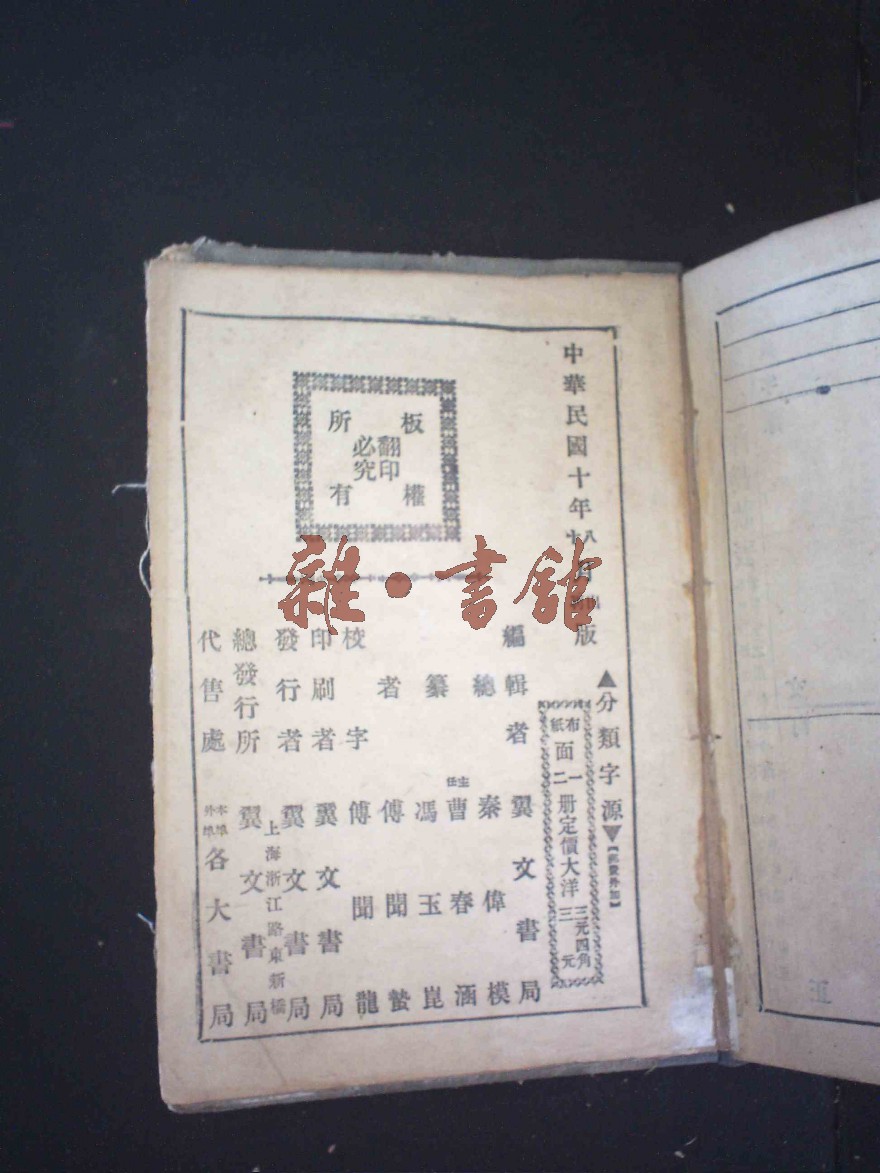 中華民國十年
版
▲分類字源▼
布面一册定價大洋三元四角
紙面二册定價大洋三元
編輯者 翼文書局
總 秦偉模
主任 曹春涵
纂 馮玉崑
者 傅聞蟄
校字 傅聞龍
印刷者 翼文書局
發行者 翼文書局
上海浙江路東新橋
總發行所 翼文書局
代售處 本埠外埠各大書局
板權所有
翻印必究
雜·書舘